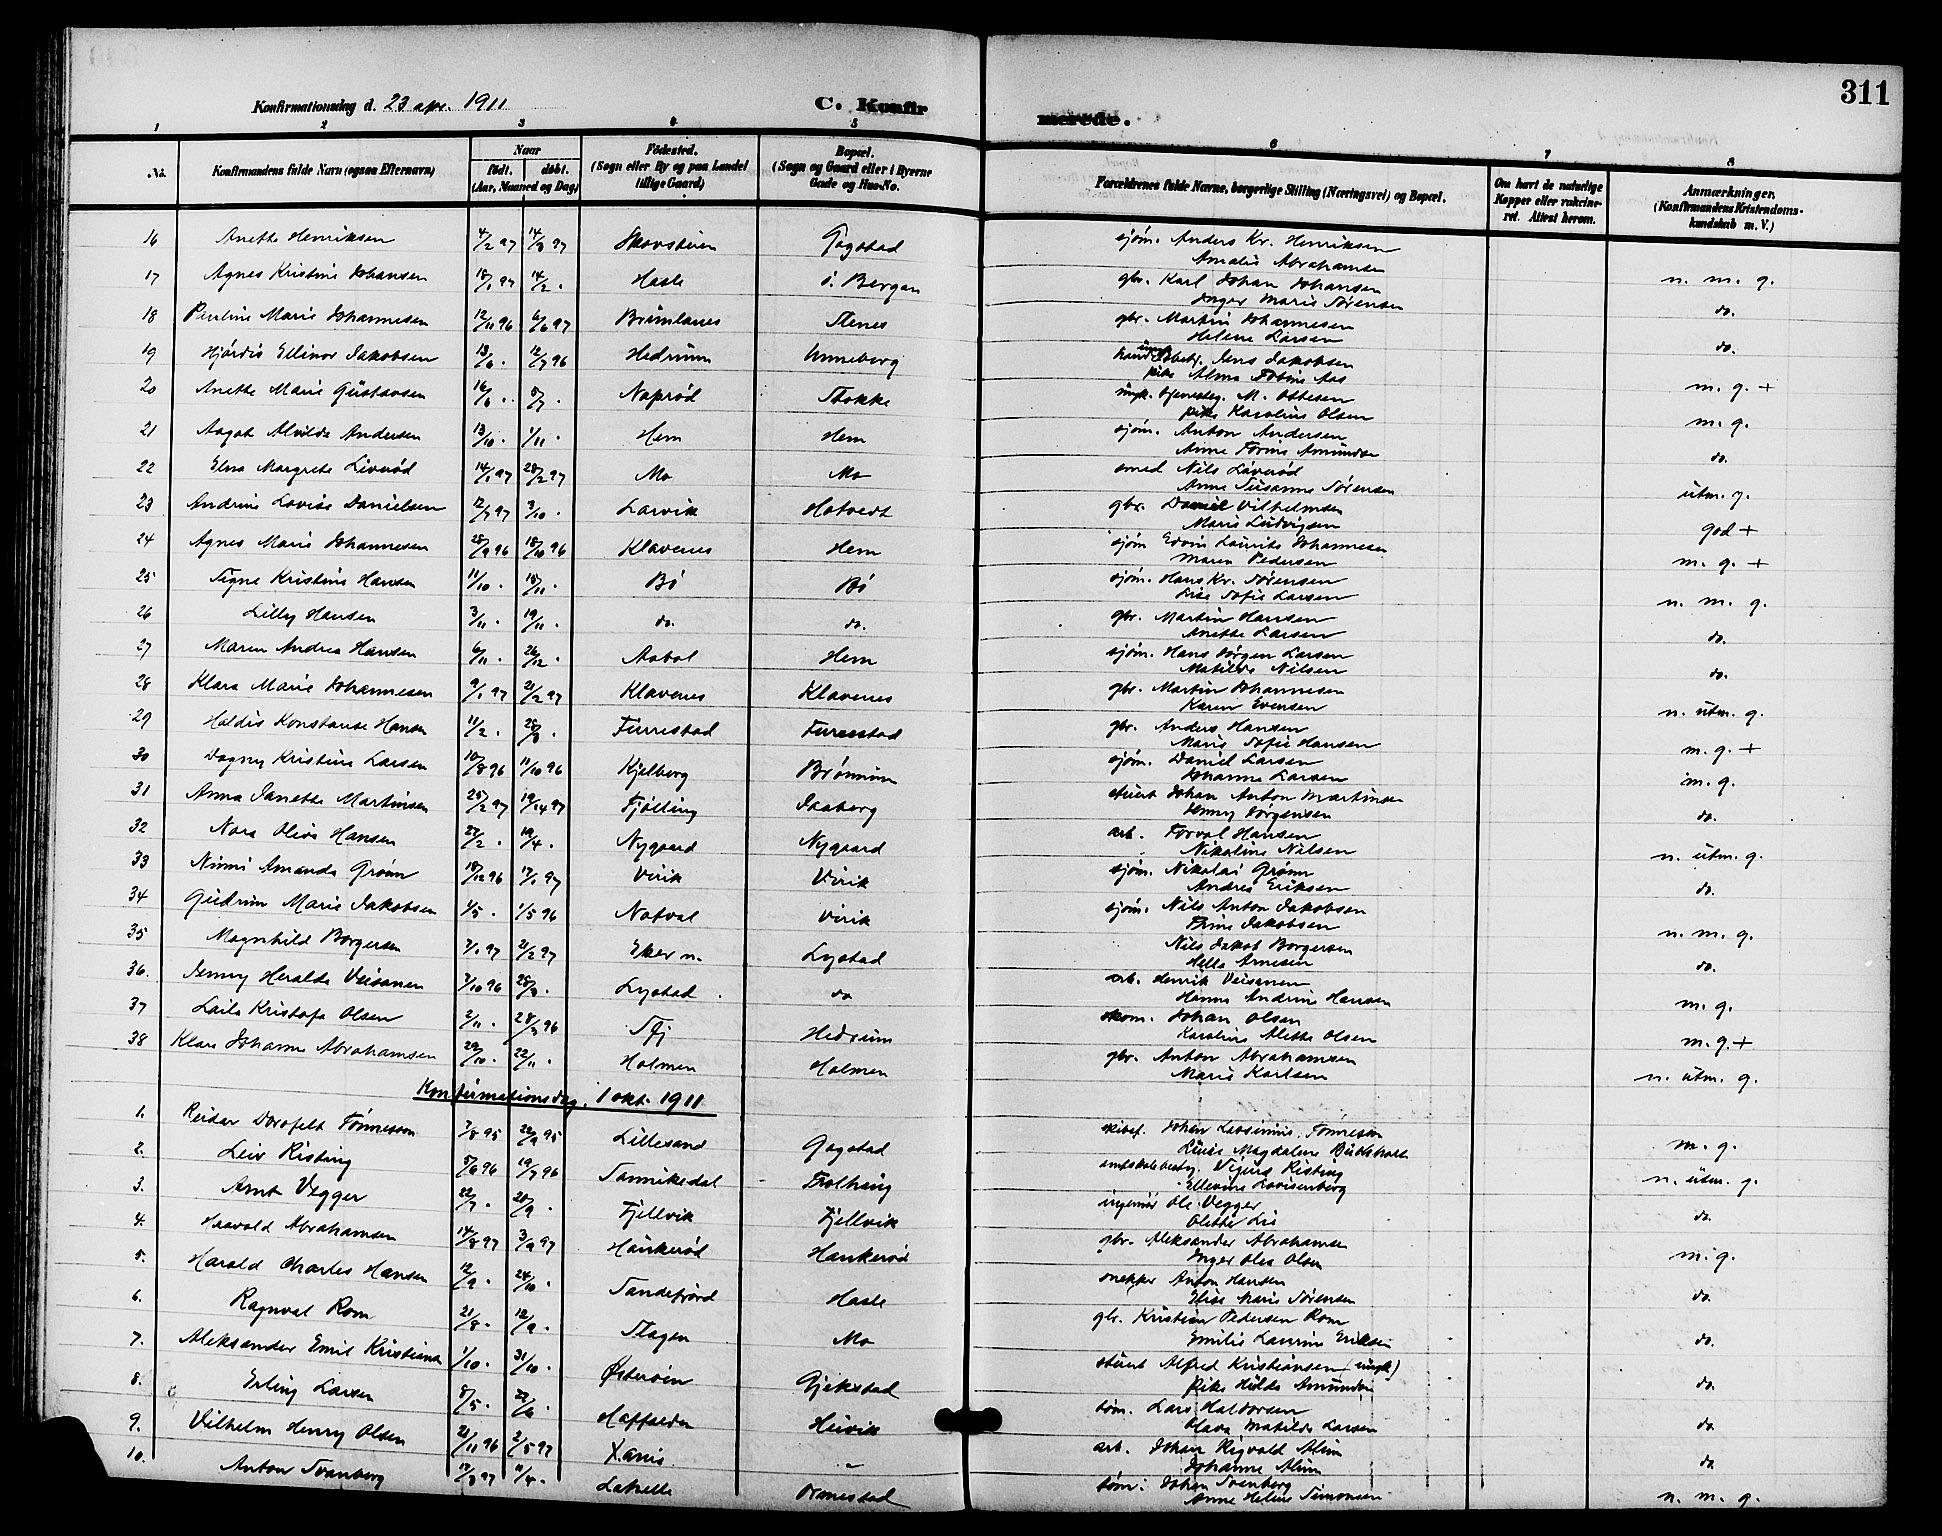 311
Konfirmationsdag d. 23 apr. 1911
C. Konfirmerede.
1 2 3 4 5 6 7 8
No.
Konfirmandens fulde Navn (ogsaa Efternavn)
Naar
født. døbt.
(Aar, Maaned og Dag)
Födested.
(Sogn eller By og paa Landet
tillige Gaard)
Bopæl.
(Sogn og Gaard eller i Byerne
Gade og Hus-No.
Forældrenes fulde Navne, borgerlige Stilling (Næringsvei) og Bopæl.
Om havt de naturlige
Kopper eller vakcine-
ret. Attest herom.
Anmærkninger.
(Konfirmandens Kristendoms-
kundskab m. V.)
16 Anette Henriksen 4/2 97 14/3 97 Gogstad sjøm. Anders Kr. Henriksen
Amalie Abrahamsen n. m. g.
17 Agnes Kristine Johansen 18/1 97 14/2 . Hasle ø. Bergan gbr. Karl Johan Johansen
Inger Marie Sørensen do.
18 Pauline Marie Johannesen 12/11 96 6/6 97 Stenes gbr. Martin Johannesen
Helene Larsen do.
19 Hjördis Ellinor Jakobsen 13/6 . 12/7 96 Hedrum Unneberg Jens Jakobsen
pike Alma Tobine Aas m. g. +
20 Anette Marie Gustavsen 16/6 . 5/7 . Noprød Stokke ungk. M. Ottesen
pike Karoline Olsen m. g.
21 Aagot Alvilde Andersen 13/10 . 1/11 . Hem Hem sjöm. Anton Andersen
Anne Amundsen do.
22 Elna Margrete Liverød 14/1 97 28/2 97 Mo Mo smed Nils Liverød
Anne Susanne Sørensen utm. g.
23 Andrine Lovise Danielsen 12/7 97 3/10 . Larvik Hotvedt gbr. Daniel Vilhelmsen
Marie Ludvigsen god +
24 Agnes Marie Johannesen 28/9 96 18/10 96 Klavenes Hem sjöm Edvin Laurits Johannesen
Maren Pedersen m. g. +
25 Signe Kristine Hansen 11/10 . 15/11 . Bö Bö sjöm. Hans Kr. Sørensen
Lise Sofie Larsen n. m. g.
26 Lilly Hansen 3/11 . 19/11 . do. do. gbr. Martin Hansen
Anette Larsen do.
27 Maren Andrea Hansen 6/11 . 26/12 . Aabol Hem sjöm. Hans Jørgen Larsen
Matilde Nilsen do.
28 Klara Marie Johannesen 9/1 97 21/2 97 Klavenes Klavenes gbr. Martin Johannesen
Karen Evensen n. utm. g.
29 Haldis Konstanse Hansen 11/2 . 28/3 . Furrestad Furrestad gbr. Anders Hansen
Marie Sofie Hansen m. g. +
30 Dagny Kristine Larsen 10/8 96 11/10 96 Kjelberg Brønnum sjöm. Daniel Larsen
Johanne Larsen m. g.
31 Anna Janette Martinsen 25/2 97 19/4 97 Tjølling Istaberg stuert Johan Anton Martinsen
Jenny Jørgensen do.
32 Nora Olivia Hansen 27/2 . 19/4 . Nygaard Nygaard arb. Torval Hansen
Nikoline Nilsen n. utm. g.
33 Nunni Amanda Grönn 18/12 96 17/1 97 Virik Virik sjöm. Nikolai Grönn
Andrea Eriksen do.
34 Gudrun Marie Jakobsen 1/3 . 1/5 96 Natval Virik sjöm. Nils Anton Jakobsen
Trine Jakobsen n. m. g.
35 Magnhild Borgersen 7/1 97 21/2 97 Eker n. Lystad Nils Jakob Borgersen
Hella Arnesen do.
36. Jenny Heralda Veisanen 7/10 96 28/3 . Lystad do arb. Henrik Veisanen
Hanna Andrine Hansen m. g.
37 Laila Kristofa Olsen 2/11 . 28/3 96 Hedrum skom. Johan Olsen
Karoline Alette Olsen m. g. +
38 Klara Johanne Abrahamsen 29/10 . 22/11 . Holmen Holmen gbr. Anton Abrahamsen
Marie Karlsen n. utm. g.
Konfirmationsdag. 1 okt. 1911
1. Reidar Dorofelt Tønnessen 7/8 95 22/9 95 Lillesand Gogstad skibsf. Johan Tønnessen
Louise Magdalene Buckholdt m. g.
2. Leiv Risting 5/6 96 19/7 96 Sannikedal amtskolebesty. Sigurd Risting
Ellevine Lovisenberg n. utm. g.
3. Arnt Vegger 22/7 . 20/9 . Fjellvik Fjellvik ingeniör Ole Vegger
Olette Lie do.
4. Haavald Abrahamsen 14/8 97 3/9 97 Haukerød Haukerød gbr. Aleksander Abrahamsen
Inger Olea Olsen m. g.
5. Harald Charles Hansen 12/9 . 24/10 . Sandefjord Hasle snekker Anton Hansen
Elise Marie Sørensen do.
6. Ragnval Rom 21/8 . 12/9 . Slagen Mo gbr. Kristian Pedersen Rom
Emilie Laurine Eriksen do.
7. Aleksander Emil Kristians 1/10 . 31/10 . Østerøen Gjekstad stuert Alfred Kristiansen (ungk.)
pike Hilda Amundsen do.
8. Erling Larsen 8/5 . 27/6 . Haffalden Heivik tøm. Lars Haldorsen
Olava Matilde Larsen do.
9. Vilhelm Henry Olsen 21/11 96 2/5 97 Xania „ arb. Johan Sigvald Alum
Johanne Alum do
10. Anton Svanberg 17/3 97 11/4 . Lahelle Ormestad tøm. Johan Svanberg
Anne Helene Simonsen n. m. g.